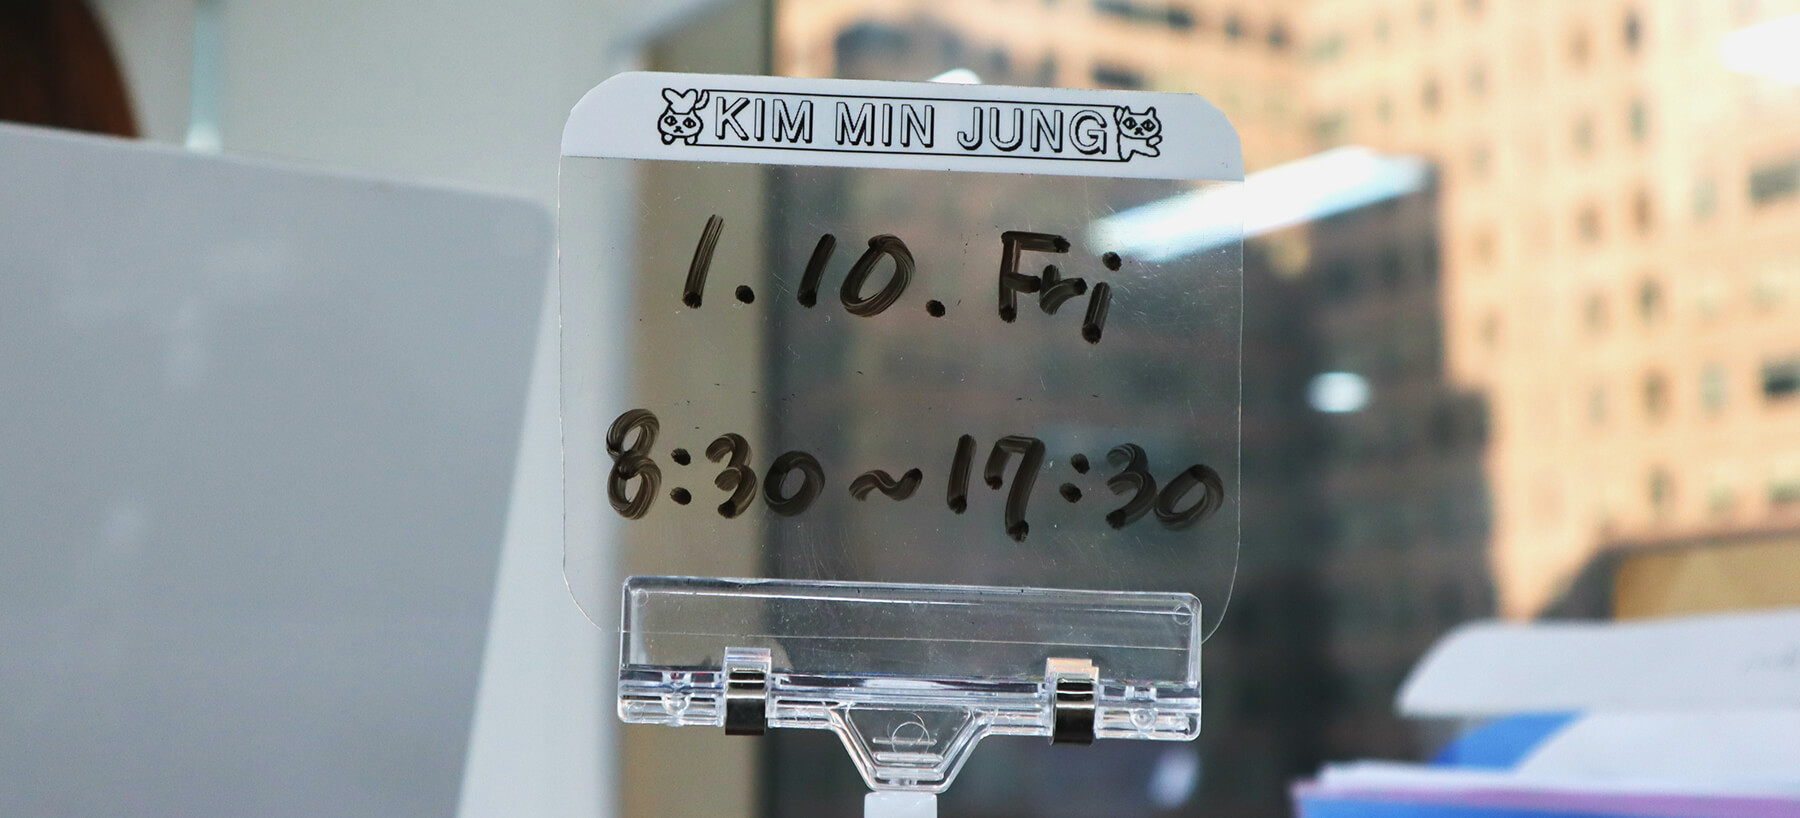 KIM MIN JUNG
1.10.Fri
8:30~17:30